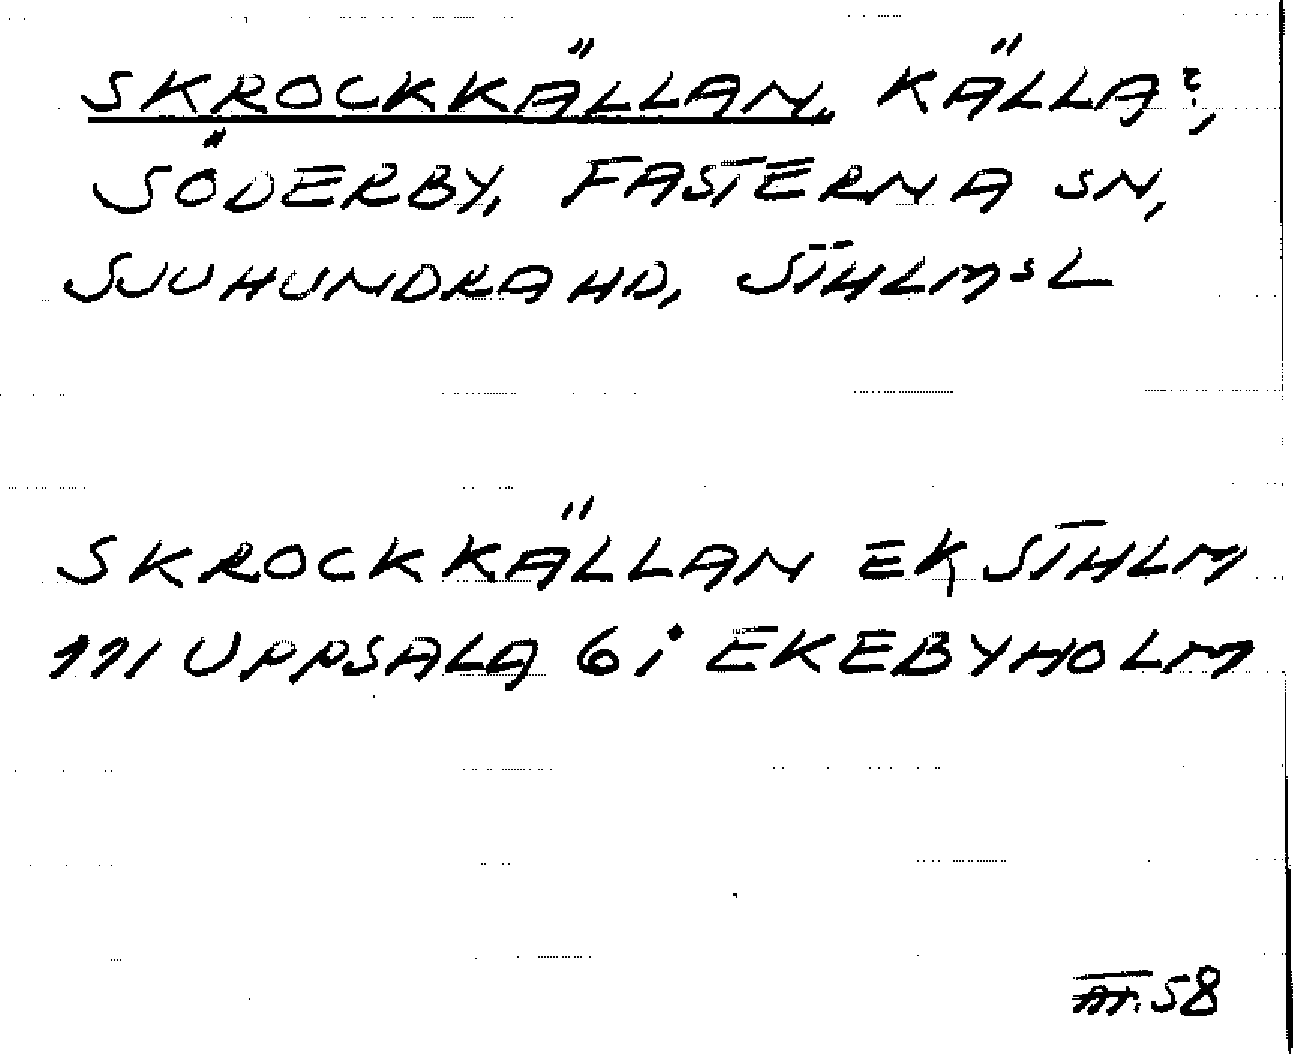 SKROCKKÄLLAN, KÄLLA?,
SÖDERBY, FASTERNA SN,
SJUHUNDRA HD, STHLMS L
SKROCKKÄLLAN EK STHLM
111 UPPSALA 6 i EKEBYHOLM
58